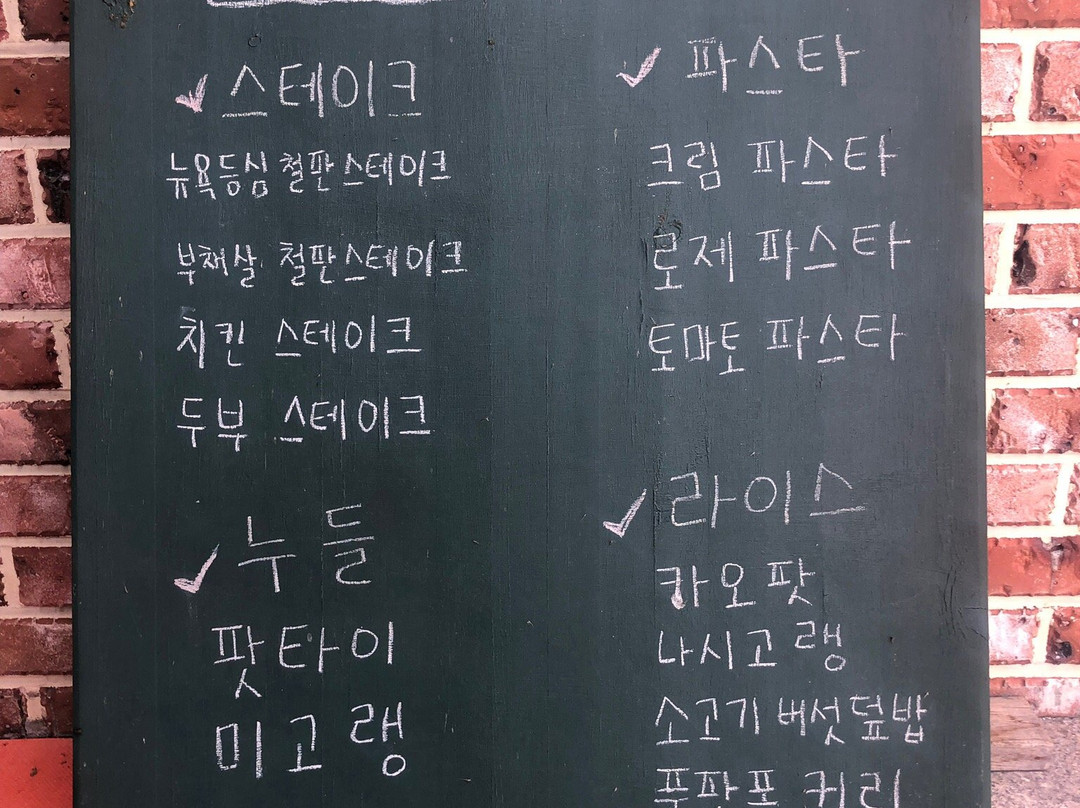 ✓ 스테이크
뉴욕등심 철판스테이크
부채살 철판스테이크
치킨 스테이크
두부 스테이크
✓ 누들
팟타이
미고랭
✓ 파스타
크림 파스타
로제 파스타
토마토 파스타
✓ 라이스
카오팟
나시고랭
소고기버섯덮밥
푸팟퐁 커리